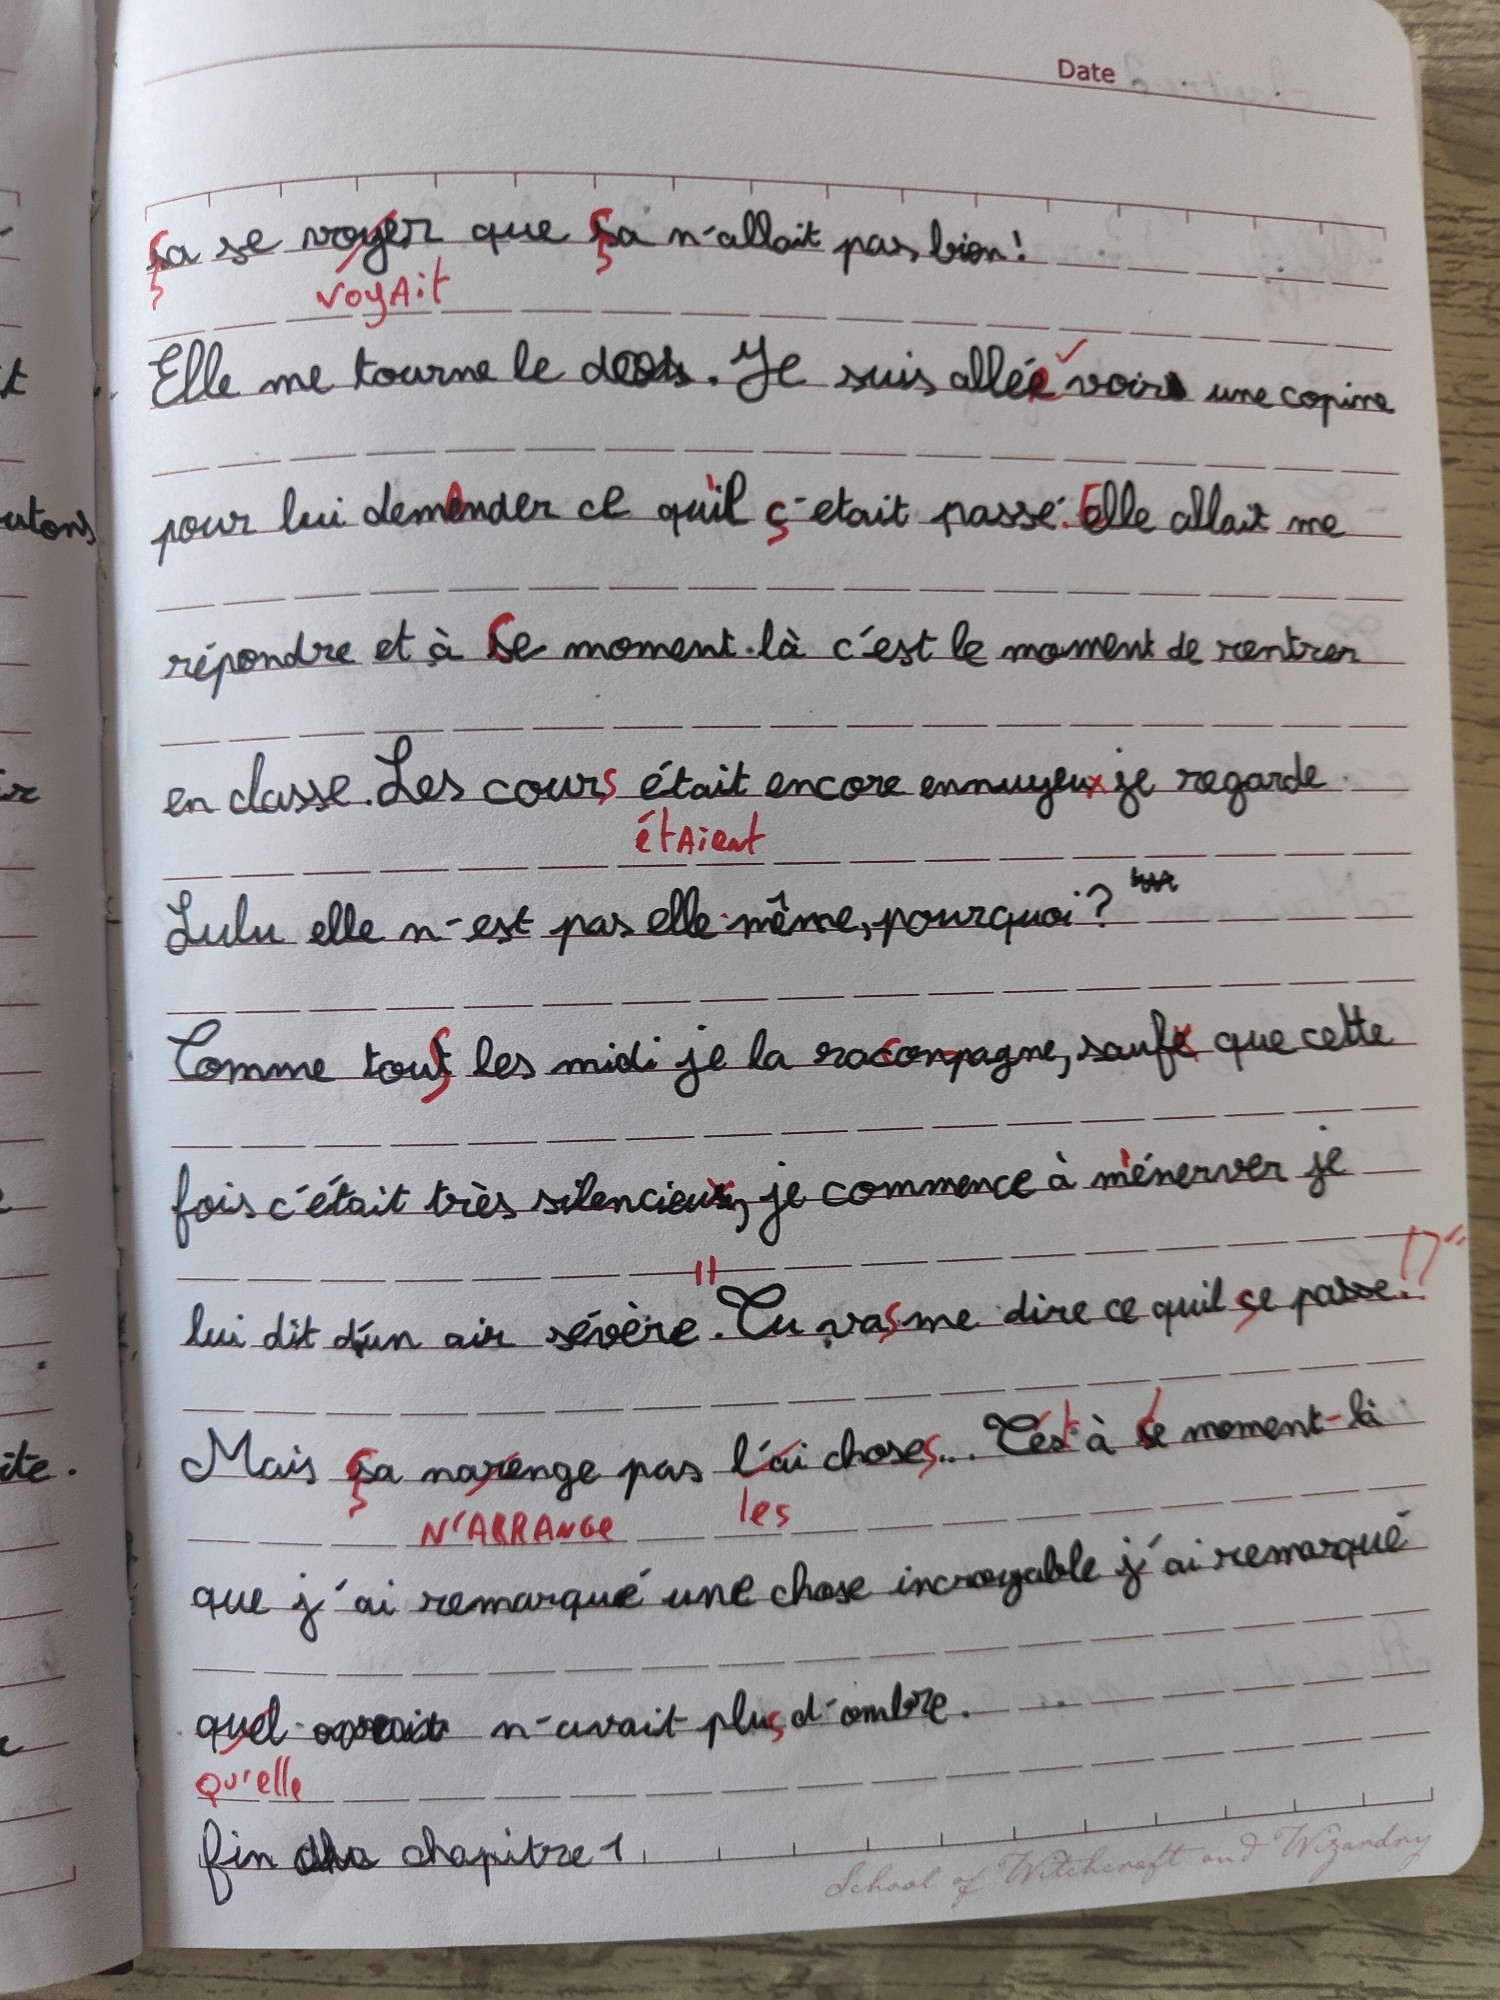 Date
ça se voyer que ça n'allait pas bien!
voyait
Elle me tourne le dos. Je suis allée voir une copine
pour lui demander ce qu'il ç'etait passé. Elle allait me
répondre et à ce moment-là c'est le moment de rentrer
en classe. Les cours était encore ennuyeux je regarde
étaient
Lulu elle n'est pas elle-même, pourquoi?
Comme tous les midi je la raconpagne, sauf que cette
fois c'était très silencieux, je commence à m'énerver je
lui dit d'un air sévère. "Tu vas me dire ce quil se passe!?"
Mais ça narenge pas l'ai choses... C'est à ce moment-là
N'ARRANGE les
que j'ai remarqué une chose incroyable j'ai remarqué
quel n'avait plus d'ombre.
qu'elle
fin chapitre 1
School of Witchcraft and Wizardry
utons
ite.